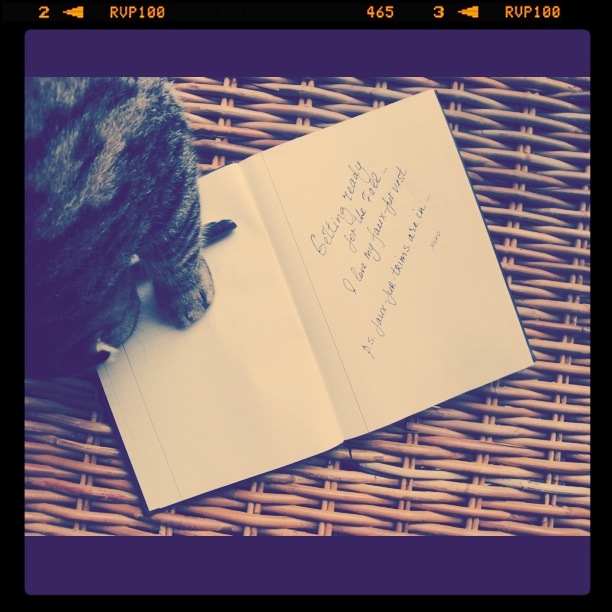 2 RVP100 465 3 RVP100
Getting ready
for the Fall...
I love my faux-fur vest
P.S. faux-fur trims are in...
xoxo